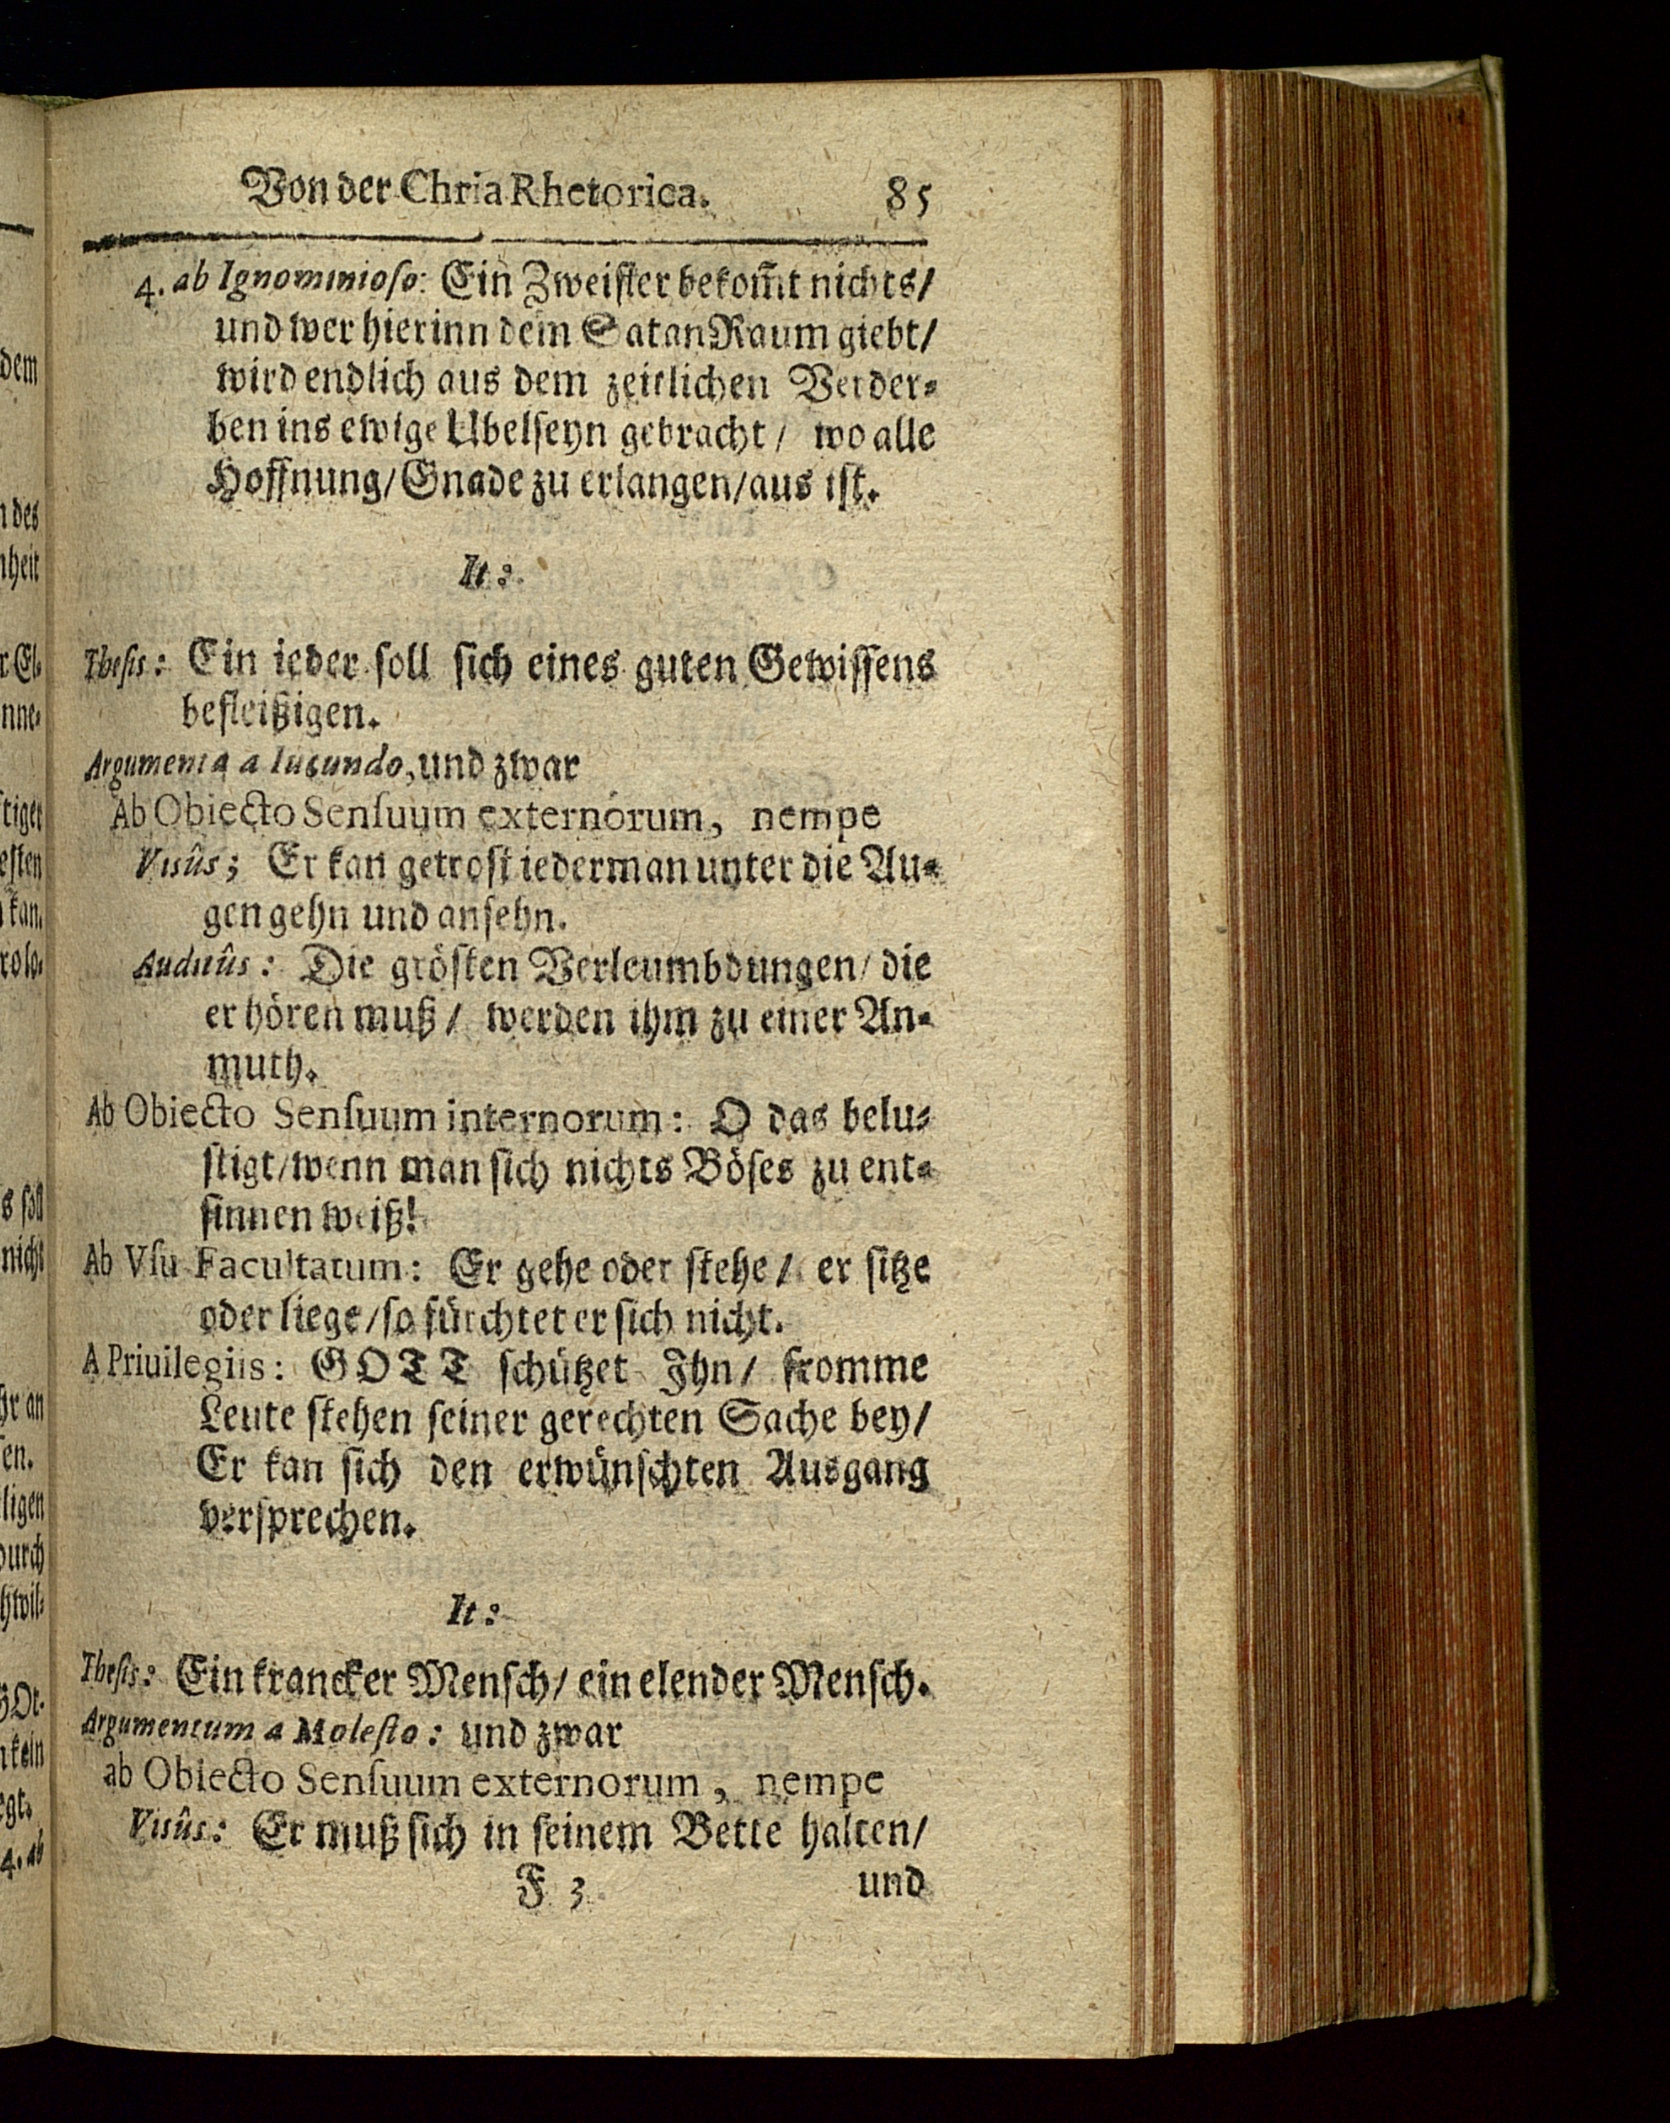 Von der Chria Rhetorica. 85
4. ab Ignominioso: Ein Zweifler bekom̃t nichts/
und wer hierinn dem Satan Raum giebt/
wird endlich aus dem zeitlichen Verder⸗
ben ins ewige Ubelseyn gebracht/ wo alle
Hoffnung/ Gnade zu erlangen/ aus ist.
It:
Thesis: Ein ieder soll sich eines guten Gewissens
befleißigen.
Argumenta a Iucundo, und zwar
Ab Obiecto Sensuum externorum, nempe
Visûs; Er kan getrost iederman unter die Au⸗
gen gehn und ansehn.
Auditûs: Die grösten Verleumbdungen/ die
er hören muß/ werden ihm zu einer An⸗
muth.
Ab Obiecto Sensuum internorum: O das belu⸗
stigt/ wenn man sich nichts Böses zu ent⸗
sinnen weiß!
Ab Vsu Facultatum: Er gehe oder stehe/ er sitze
oder liege/ so fürchtet er sich nicht.
A Priuilegiis: GOTT schützet Ihn/ fromme
Leute stehen seiner gerechten Sache bey/
Er kan sich den erwünschten Ausgang
versprechen.
It:
Thesis: Ein krancker Mensch/ ein elender Mensch.
Argumentum a Molesto: und zwar
ab Obiecto Sensuum externorum, nempe
Visûs: Er muß sich in seinem Bette halten/
F 3 und